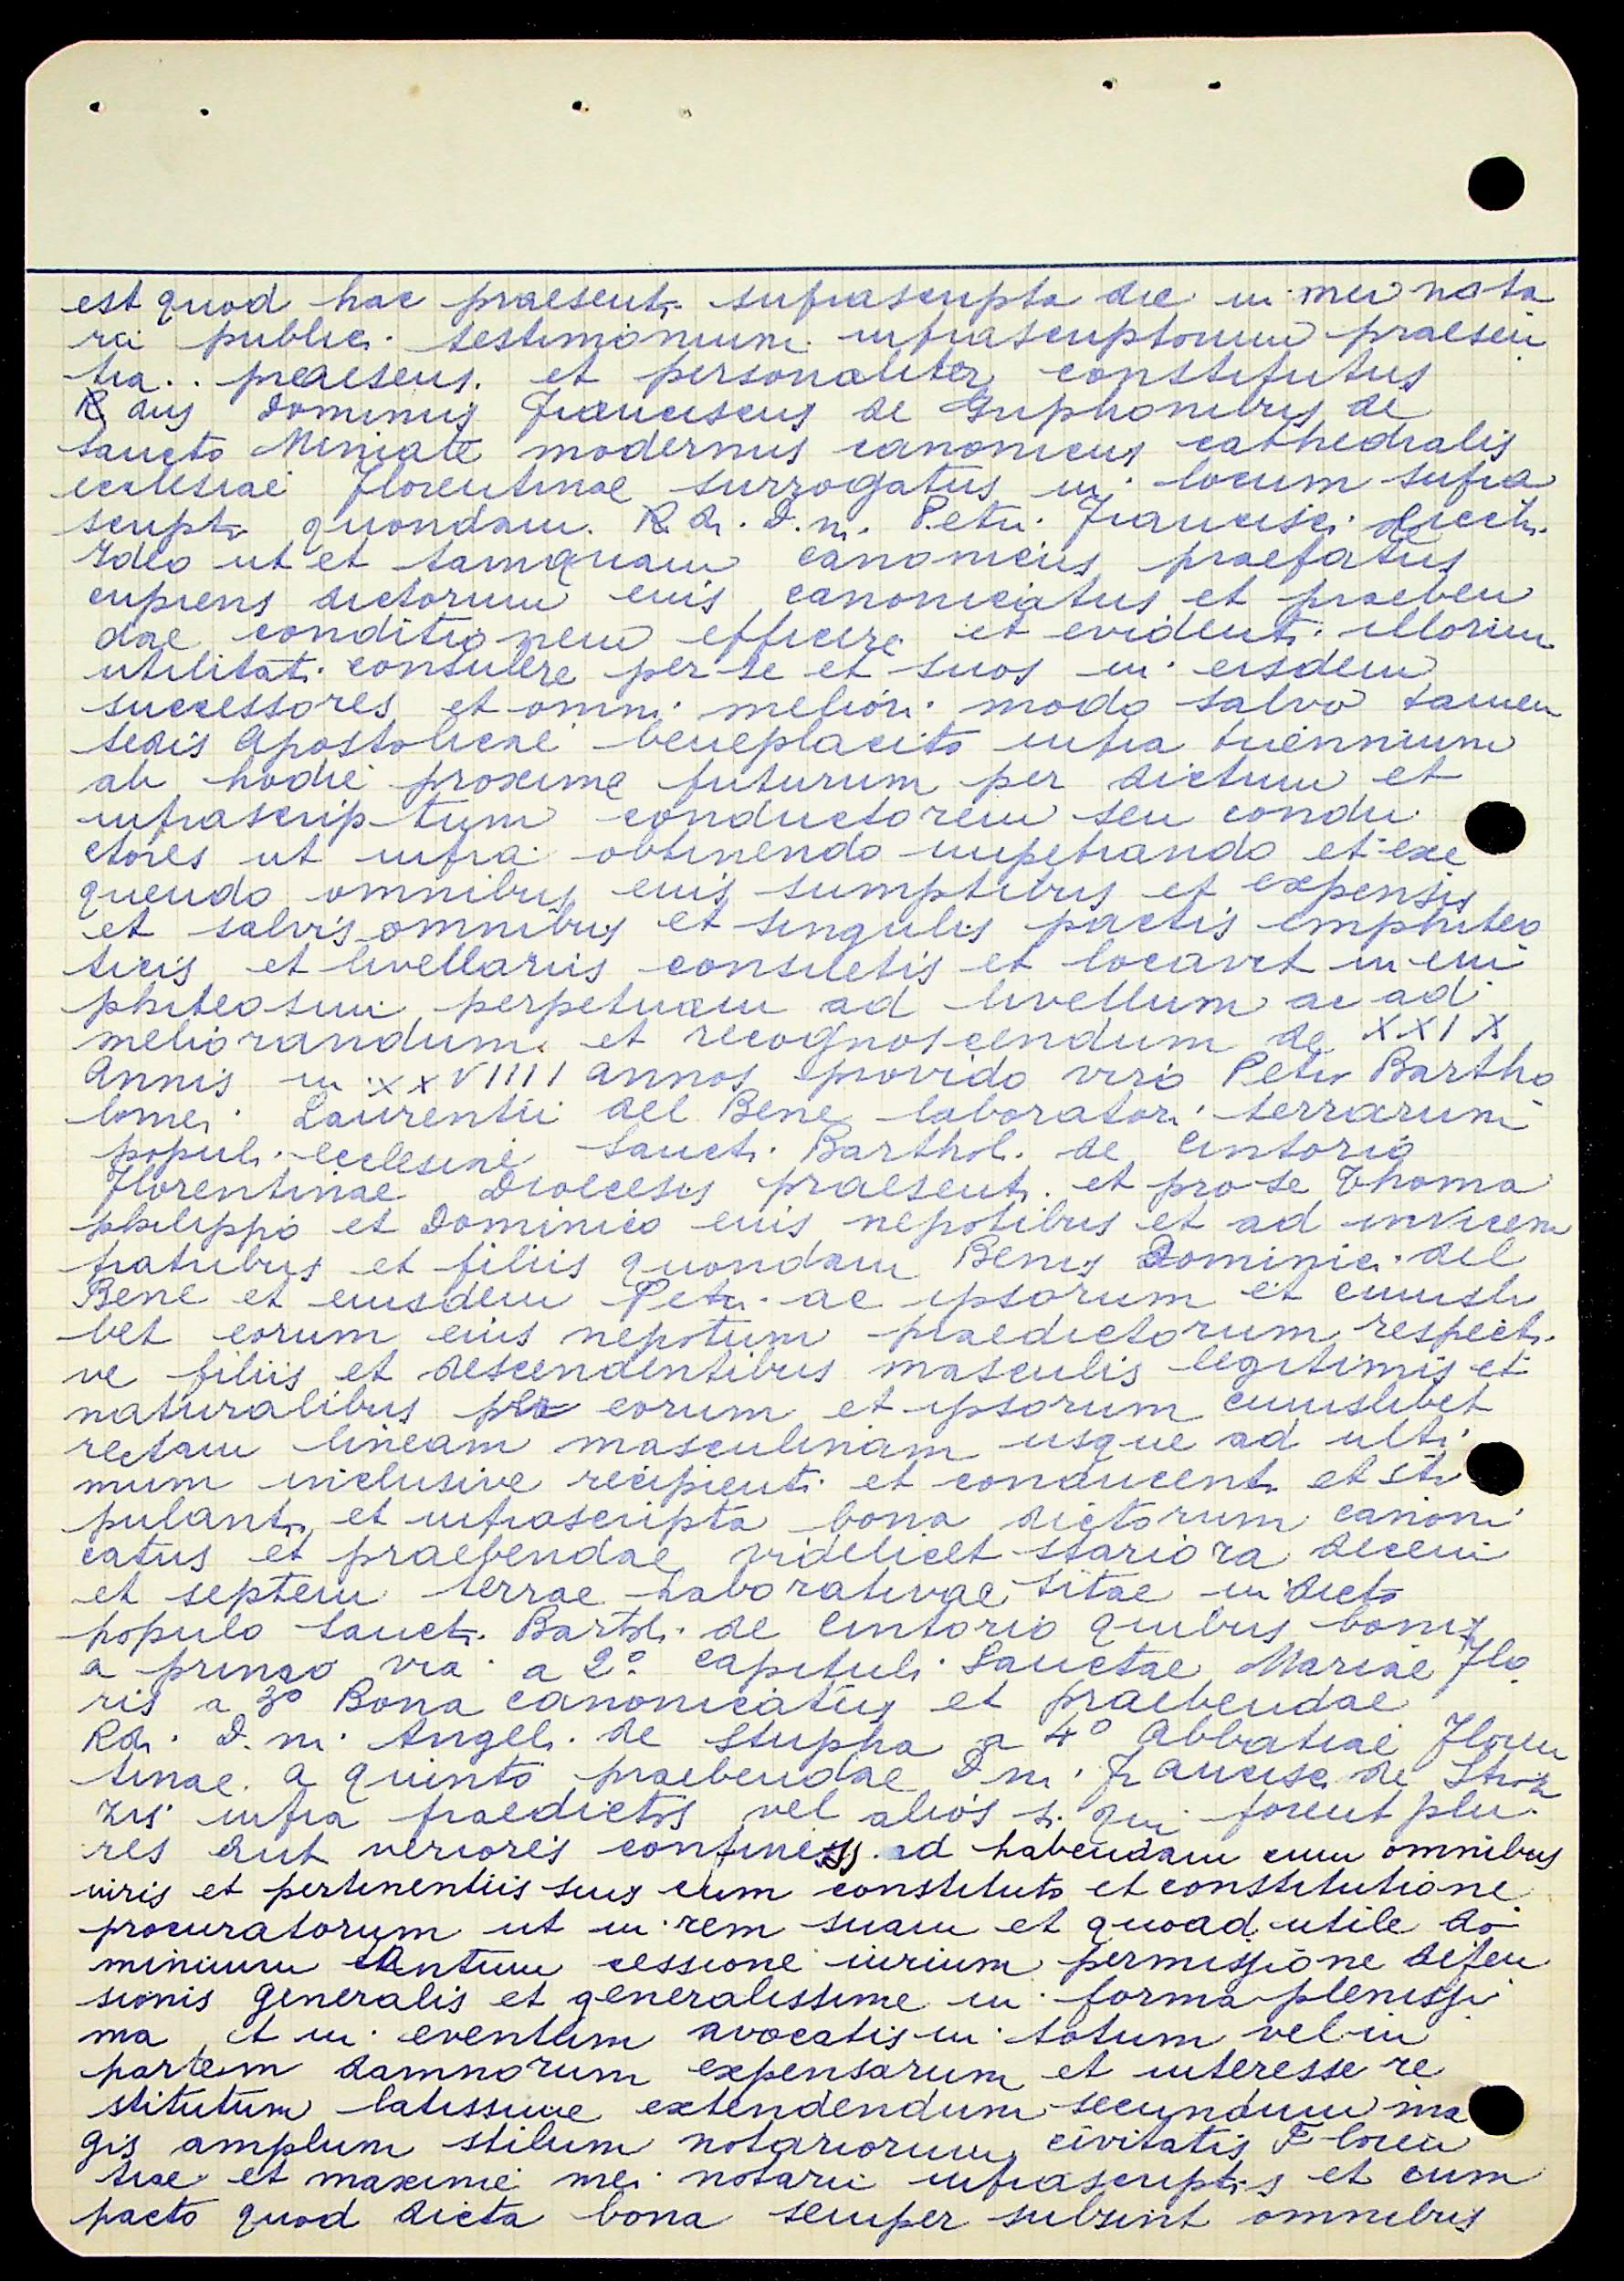 est quod hac praesenti suprascripta die in mei nota
rii publici testimonium infrascriptorum praesen
tia.. praesens. et personaliter constitutus
R dus Dominus Franciscus de Griphonibus de
Sancto Meniate modernus canonicus cathedralis
ecclesiae florentinae surrogatus in locum supra
scripti quondam. R.di. D.ni. Petri Francisci
Ideo ut et tamquam canonicus praefatus
cupiens dictorum eius canonicatus et praeben
dae conditionem efficere et evidenti illorum
utilitati consulere per se et suos in eisdem
successores et omni meliori modo salvo tamen
sedis Apostolicae beneplacito infra triennium
ab hodie proxime futurum per dictum et
infrascriptum conductorem seu condu
ctores ut infra obtinendo impetrando et exe
quendo omnibus eius sumptibus et expensis
et salvis omnibus et singulis pactis emphiteo
ticis et livellariis consuetis et locavit in em
phiteosim perpetuam ad livellum ac ad
meliorandum. et recognoscendum de XXIX
Annis in XXVIIII annos provido viro Petro Bartho
lomei Laurentii del Bene laboratori terrarum
populi ecclesiae Sancti Barthol. de Cintorio
Florentinae Diocesis praesenti et pro se Thoma
philippo et Dominico eius nepotibus et ad invicem
fratribus et filiis quondam Benis Dominici del
Bene et eiusdem Petri ac ipsorum et cuiusli
bet eorum eius nepotum praedictorum respecti
ve filiis et descendentibus masculis legitimis et
naturalibus per eorum et ipsorum cuiuslibet
rectam lineam masculinam usque ad ulti
mum inclusive recipienti et conducenti et sti
pulanti et infrascripta bona dictorum canoni
catus et praebendae videlicet stariora decem
et septem terrae laborativae sitae in dicto
populo Sancti Barthol. de Cintorio quibus bonis
a primo via a 2º Capituli Sanctae Mariae Flo
ris a 3º Bona canonicatus et praebendae
Rdi. D.ni. Angeli de Stupha a 4º Abbatiae Floren
tinae. a quinto praebendae D.ni. Francisci de Stroz
zis infra praedictos vel alios si qui forent plu
res aut veriores confines ad habendam cum omnibus
iuris et pertinentiis suis cum constituto et constitutione
procuratorum ut in rem suam et quoad utile do
minium tantum cessione iurium permissione defen
sionis generalis et generalissime in forma plenissi
ma et in eventum avocatis in totum vel in
partem damnorum expensarum et interesse re
stitutum latissime extendendum secundum ma
gis amplum stilum notariorum civitatis Floren
tiae et maxime mei notarii infrascriptis et cum
pacto quod dicta bona semper subsint omnibus